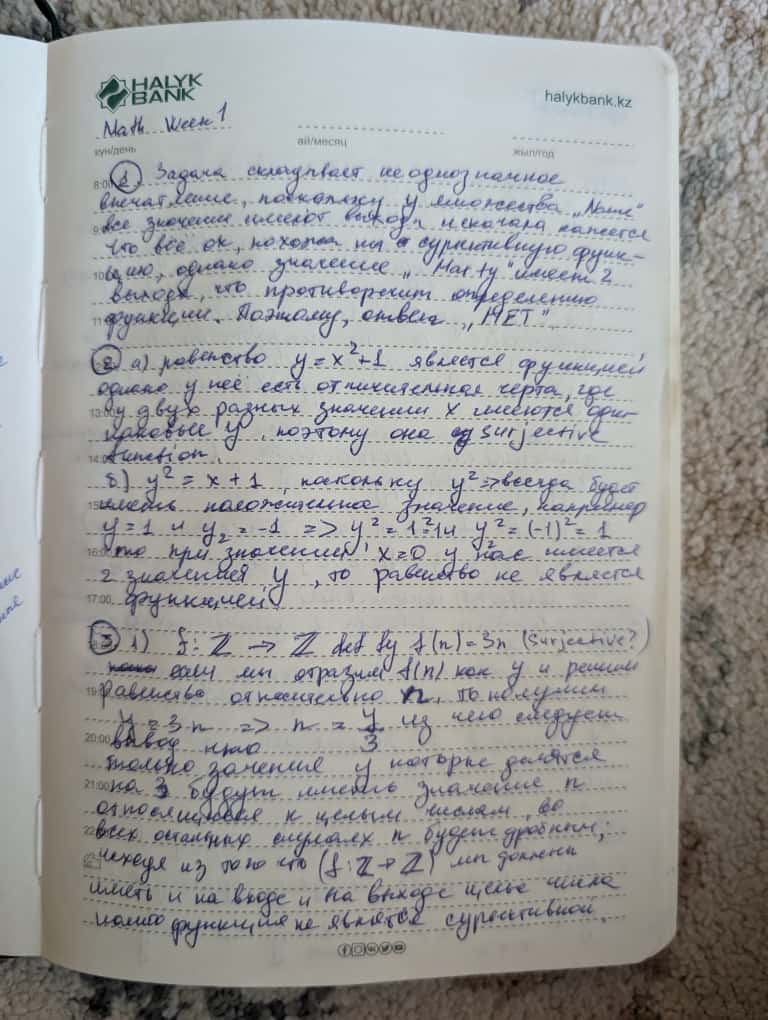 HALYK
BANK
halykbank.kz
Math Week 1
күн/день
ай/месяц
жыл/год
8:00 1 Задача складывает неоднозначное
впечатление, поскольку у множества „Name"
все значения имеют выход и сначала кажется
что все ок, похожа на сурьективную функ-
10 цию, однако значение „Marty" имеет 2
выхода, что противоречит определению
11 функции. Поэтому, ответ „НЕТ"
2 а) равенство y = x²+1 является функцией
однако у неё есть отличительная черта, где
13:00 у двух разных значений x имеются оди-
наковые y, поэтому она surjective
14:00 function.
б) y² = x + 1, поскольку y² => всегда будет
15 иметь положительна значение, например
y = 1 и y₂ = -1 => y² = 1² = 1 и y² = (-1)² = 1
16:00 то при значении x=0 у нас имеется
2 значения y, то равенство не является
17:00 функцией
3 1) f: ℤ → ℤ def by f(n) = 3n (surjective?)
если мы отразим f(n) как y и решим
19 равенство относительно n, то получим
y = 3·n => n = y/3 из чего следует
20:00 вывод что
только значения y которые делятся
21:00 на 3 будут иметь значение n
относящиеся к целым числам, во
22 всех остальных случаях n будет дробным;
исходя из того что (f: ℤ → ℤ) мы должны
иметь и на входе и на выходе целые числа
функция не является сурьективной.